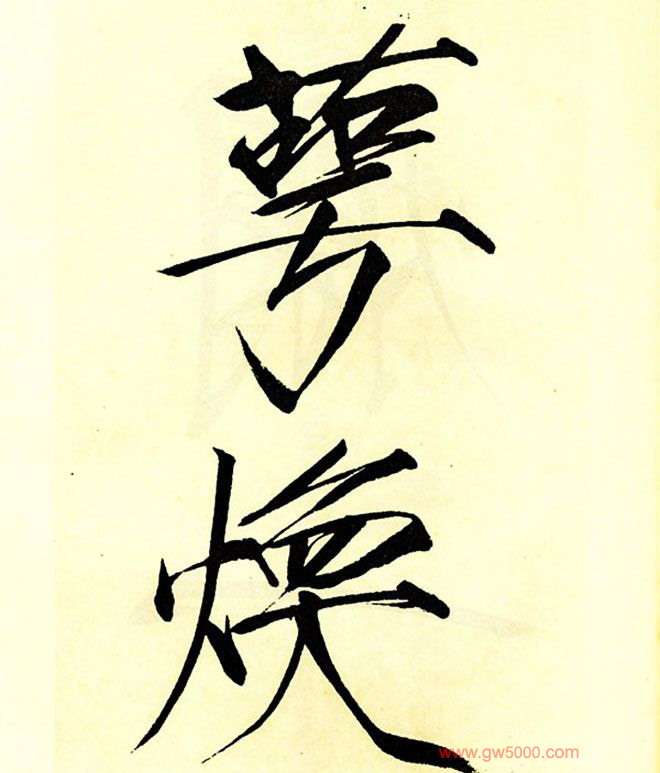 萼
煥
www.gw5000.com